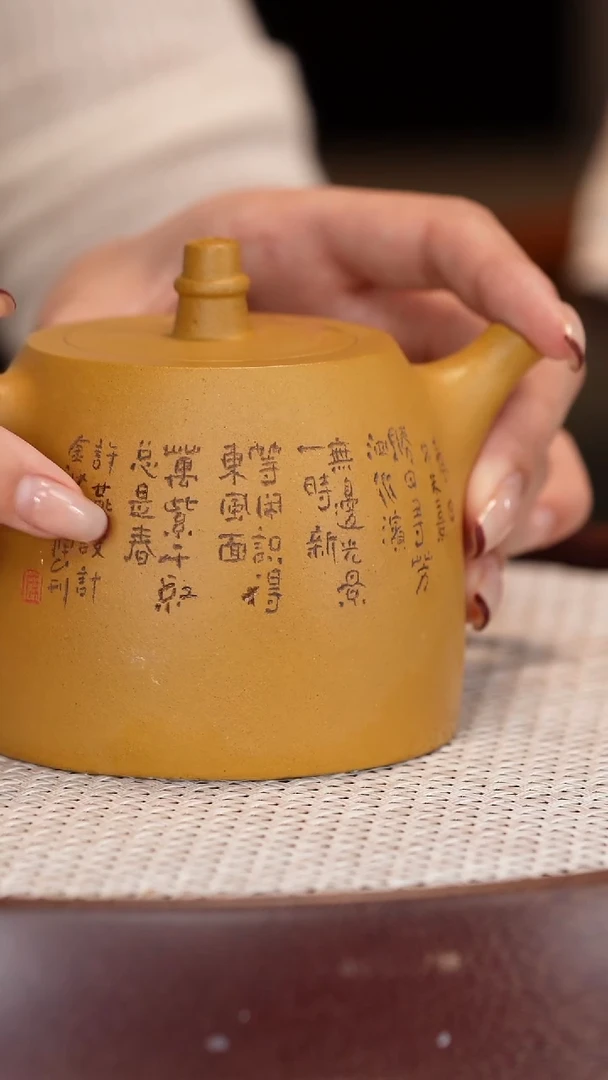 勝日尋芳
泗水濱
無邊光景
一時新
等閑識得
東風面
萬紫千紅
總是春
許
計
金